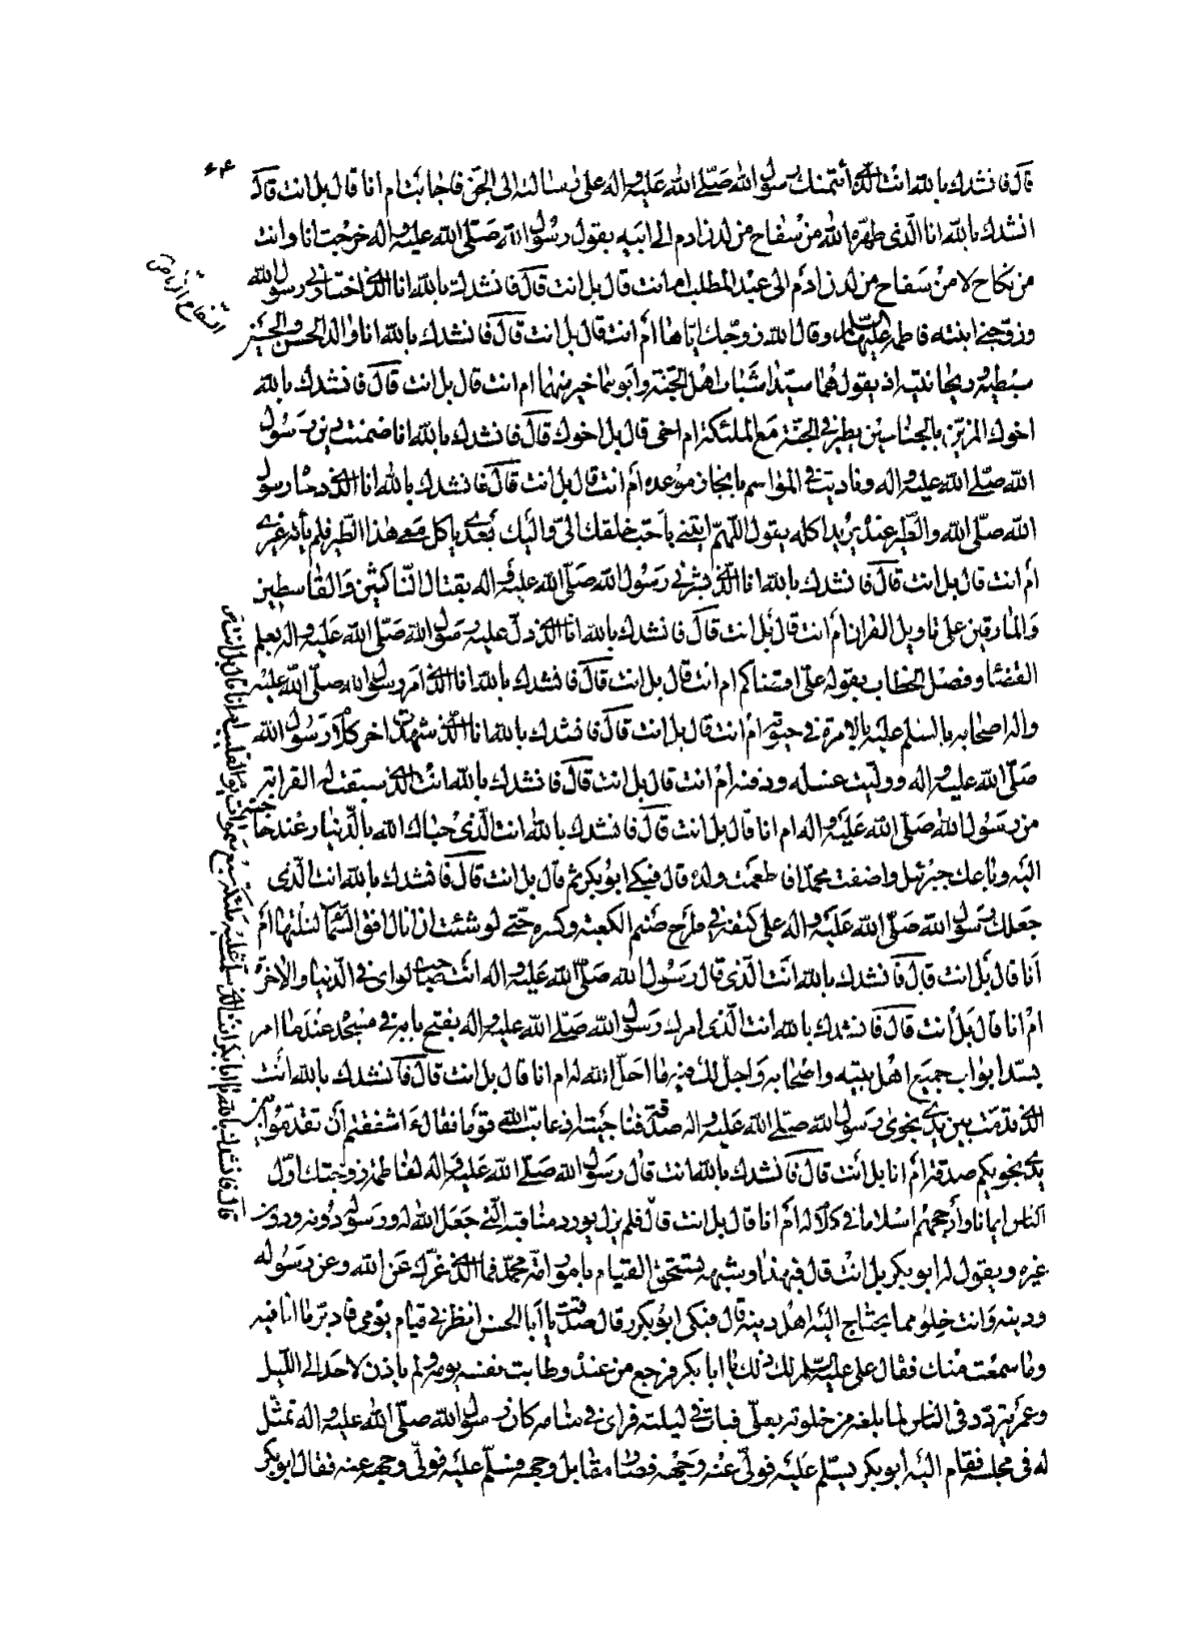 ۶۴
قال فانشدك بالله انت الذى ائتمنك رسول الله صلى الله عليه واله على رسالته الى الجن فاجابت ام انا قال بل انت قال
انشدك بالله انا الذى طهره الله من سفاح من لدن ادم الى ابيه بقول رسول الله صلى الله عليه واله خرجت انا وانت
من نكاح لا من سفاح من لدن ادم الى عبد المطلب ام انت قال بل انت قال فانشدك بالله انا الذى اختارنى رسول الله
وزوجنى ابنته فاطمة عليها السلام وقال الله زوجك اياها ام انت قال بل انت قال فانشدك بالله انا والد الحسن والحسين
سبطيه وريحانتيه اذ يقول هما سيدا شباب اهل الجنة وابوهما خير منهما ام انت قال بل انت قال فانشدك بالله
اخوك المزين بالجناحين يطير فى الجنة مع الملئكة ام اخى قال بل اخوك قال فانشدك بالله انا ضمنت دين رسول
الله صلى الله عليه واله وناديت فى المواسم بانجاز موعده ام انت قال بل انت قال فانشدك بالله انا الذى دعا رسول
الله صلى الله والطير عنده يريد اكله يقول اللهم ايتنى باحب خلقك الى واليك بعدى ياكل معى هذا الطير فلم ياته غيرى
ام انت قال بل انت قال فانشدك بالله انا الذى بشرنى رسول الله صلى الله عليه واله بقتال الناكثين والقاسطين
والمارقين على تاويل القران ام انت قال بل انت قال فانشدك بالله انا الذى دل عليه رسول الله صلى الله عليه واله بعلم
القضا وفصل الخطاب بقوله على اقضاكم ام انت قال بل انت قال فانشدك بالله انا الذى امر رسول الله صلى الله عليه
واله اصحابه بالسلم عليه بالامرة فى حيوته ام انت قال بل انت قال فانشدك بالله انا الذى شهدت اخر كلام رسول الله
صلى الله عليه واله ووليت غسله ودفنه ام انت قال بل انت قال فانشدك بالله انت الذى سبقت له القرابة
من رسول الله صلى الله عليه واله ام انا قال بل انت قال فانشدك بالله انت الذى حباك الله بالدينار عند حاجته
اليه وباعك جبرئيل واضفت محمدا واطعمت ولده قال فبكى ابوبكر ثم قال بل انت قال فانشدك بالله انت الذى
جعلك رسول الله صلى الله عليه واله على كتفه فى طرح صنم الكعبة وكسره حتى لو شئت ان انال افق السما لنلتها ام
انا قال بل انت قال فانشدك بالله انت الذى قال رسول الله صلى الله عليه واله انت صاحب لواى فى الدنيا والاخرة
ام انا قال بل انت قال فانشدك بالله انت الذى امرك رسول الله صلى الله عليه واله بفتح بابه فى مسجده عندما امر
بسد ابواب جميع اهل بيته واصحابه واحل لك فيه ما احل الله له ام انا قال بل انت قال فانشدك بالله انت
الذى قدمت بين يدى نجوى رسول الله صلى الله عليه واله صدقة فناجيته اذ عاتب الله قوما فقال ءاشفقتم ان تقدموا بين
يدى نجويكم صدقة ام انا بل انت قال فانشدك بالله انت قال رسول الله صلى الله عليه واله لفاطمة زوجتك اول
الناس ايمانا وارجحهم اسلاما فى كلام له ام انا قال بل انت قال فلم يزل يورد مناقبه التى جعل الله له ورسوله دونه ودون
غيره ويقول له ابو بكر بل انت قال فبهذا وشبهه تستحق القيام بامور امة محمد فما الذى غرك عن الله وعن رسوله
ودينه وانت خلو مما يحتاج اليه اهل دينه قال فبكى ابوبكر وقال صدقت يا ابا الحسن انظرنى قيام يومى فادبر ما انا فيه
وما سمعت منك فقال على عليه السلام لك ذلك يا ابا بكر فرجع من عنده وطابت نفسه يومه ولم ياذن لاحد الى الليل
وعمر يتردد فى الناس لما بلغه من خلوته بعلى فبات فى ليلته فراى فى منامه كان رسول الله صلى الله عليه واله تمثل
له فى مجلسه فقام اليه ابو بكر يسلم عليه فولى عنه وجهه فصار مقابل وجهه فسلم عليه فولى وجهه عنه فقال ابو بكر
قال فانشدك بالله يا ابا بكر انت الذى سلمت عليه ملئكة سبع سموات يوم القليب ام انا قال بل انت